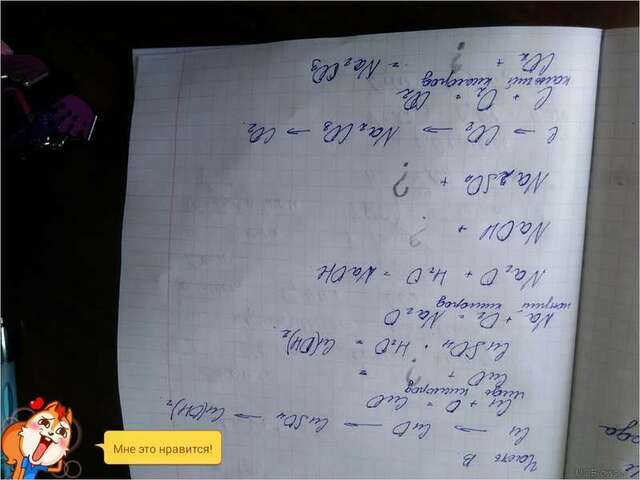 Часть B
Cu → CuO → CuSO₄ → Cu(OH)₂
Cu + O = CuO
кислород
CuO + ? =
CuSO₄ + H₂O = Cu(OH)₂
Na + O₂ = Na₂O
натрий кислород
Na₂O + H₂O = NaOH
NaOH + ?
Na₂SO₄ + ?
C → CO₂ → Na₂CO₃ → CO₂
C + O₂ = CO₂
кислород
CO₂ + ? = Na₂CO₃
Мне это нравится!